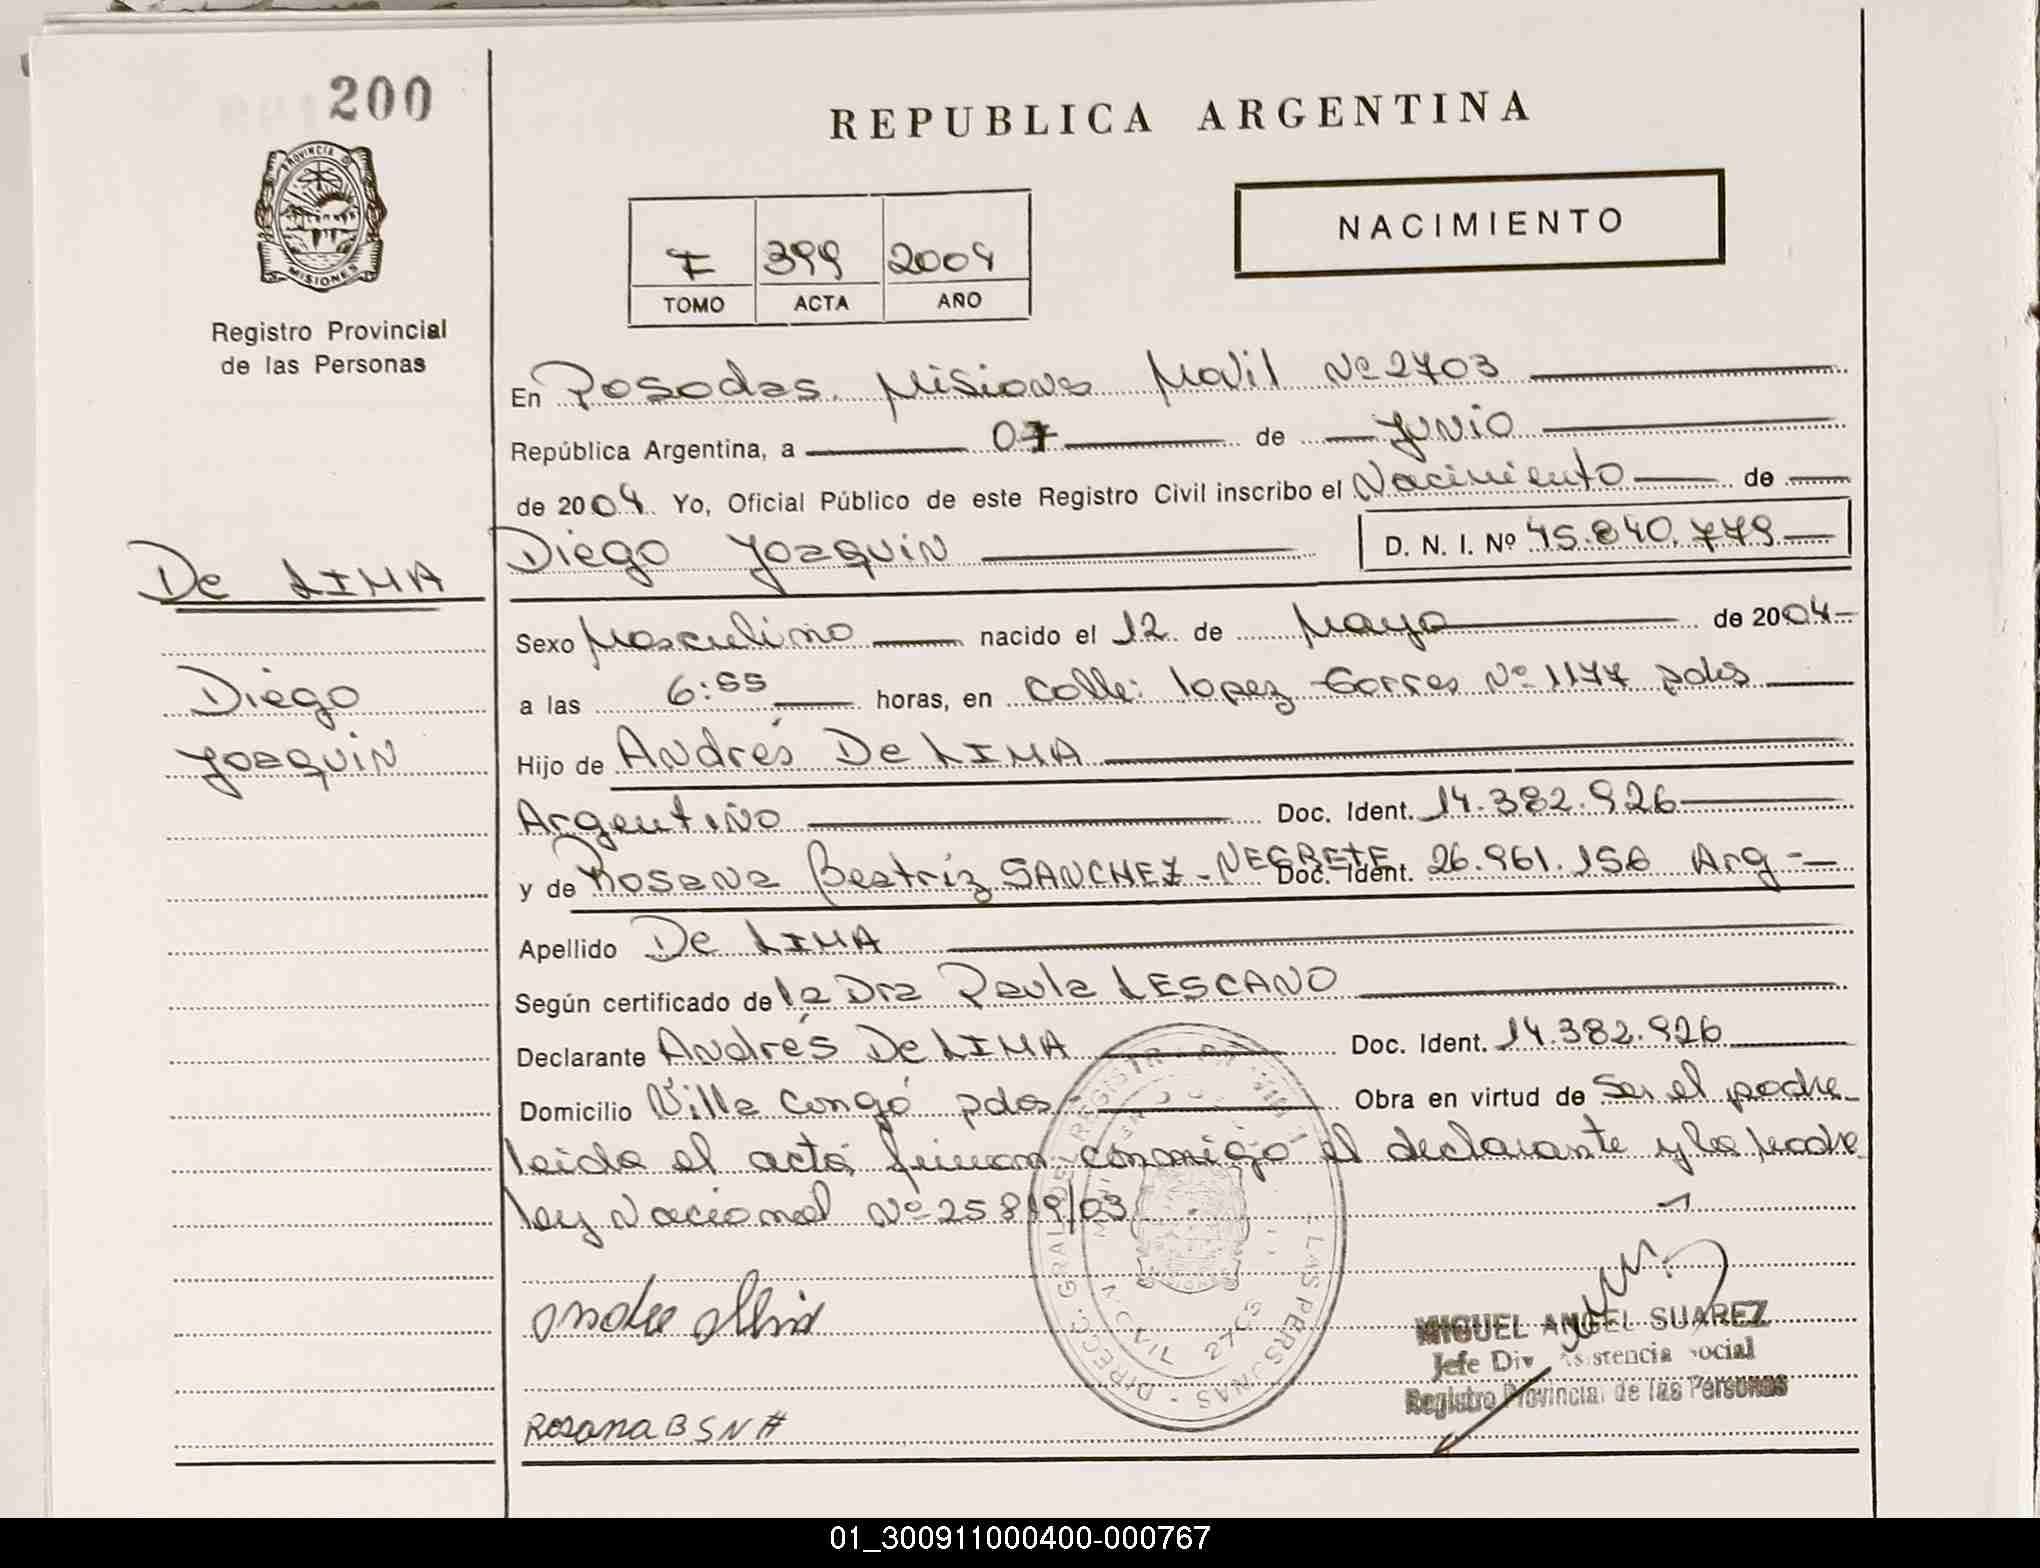 200
PROVINCIA DE
MISIONES
Registro Provincial
de las Personas
REPUBLICA ARGENTINA
NACIMIENTO
7 399 2004
TOMO ACTA AÑO
En Posadas, Misiones Movil Nº 2703
República Argentina, a 07 de Junio
de 2004 Yo, Oficial Público de este Registro Civil inscribo el Nacimiento de
Diego Joaquin D. N. I. Nº 45.840.779
De LIMA
Diego
Joaquin
Sexo Masculino nacido el 12 de Mayo de 2004
a las 6:55 horas, en Calle: lopez torres Nº 1177 pdas
Hijo de Andrés De LIMA
Argentino Doc. Ident. 14.382.926
y de Rosana Beatriz SANCHEZ-NEGRETE Doc. Ident. 26.961.156 Arg
Apellido De LIMA
Según certificado de la Dra Paula LESCANO
Declarante Andrés De LIMA Doc. Ident. 14.382.926
Domicilio Villa Congó pdas Obra en virtud de Ser el padre
leida el acta firman conmigo el declarante y la madre
ley Nacional Nº 25819/03
DIRECC. GRAL. DE REGISTRO LAS PERSONAS
MOVIL 2703
Rosana B S N
MIGUEL ANGEL SUAREZ
Jefe Div. Asistencia Social
Registro Provincial de las Personas
01_300911000400-000767